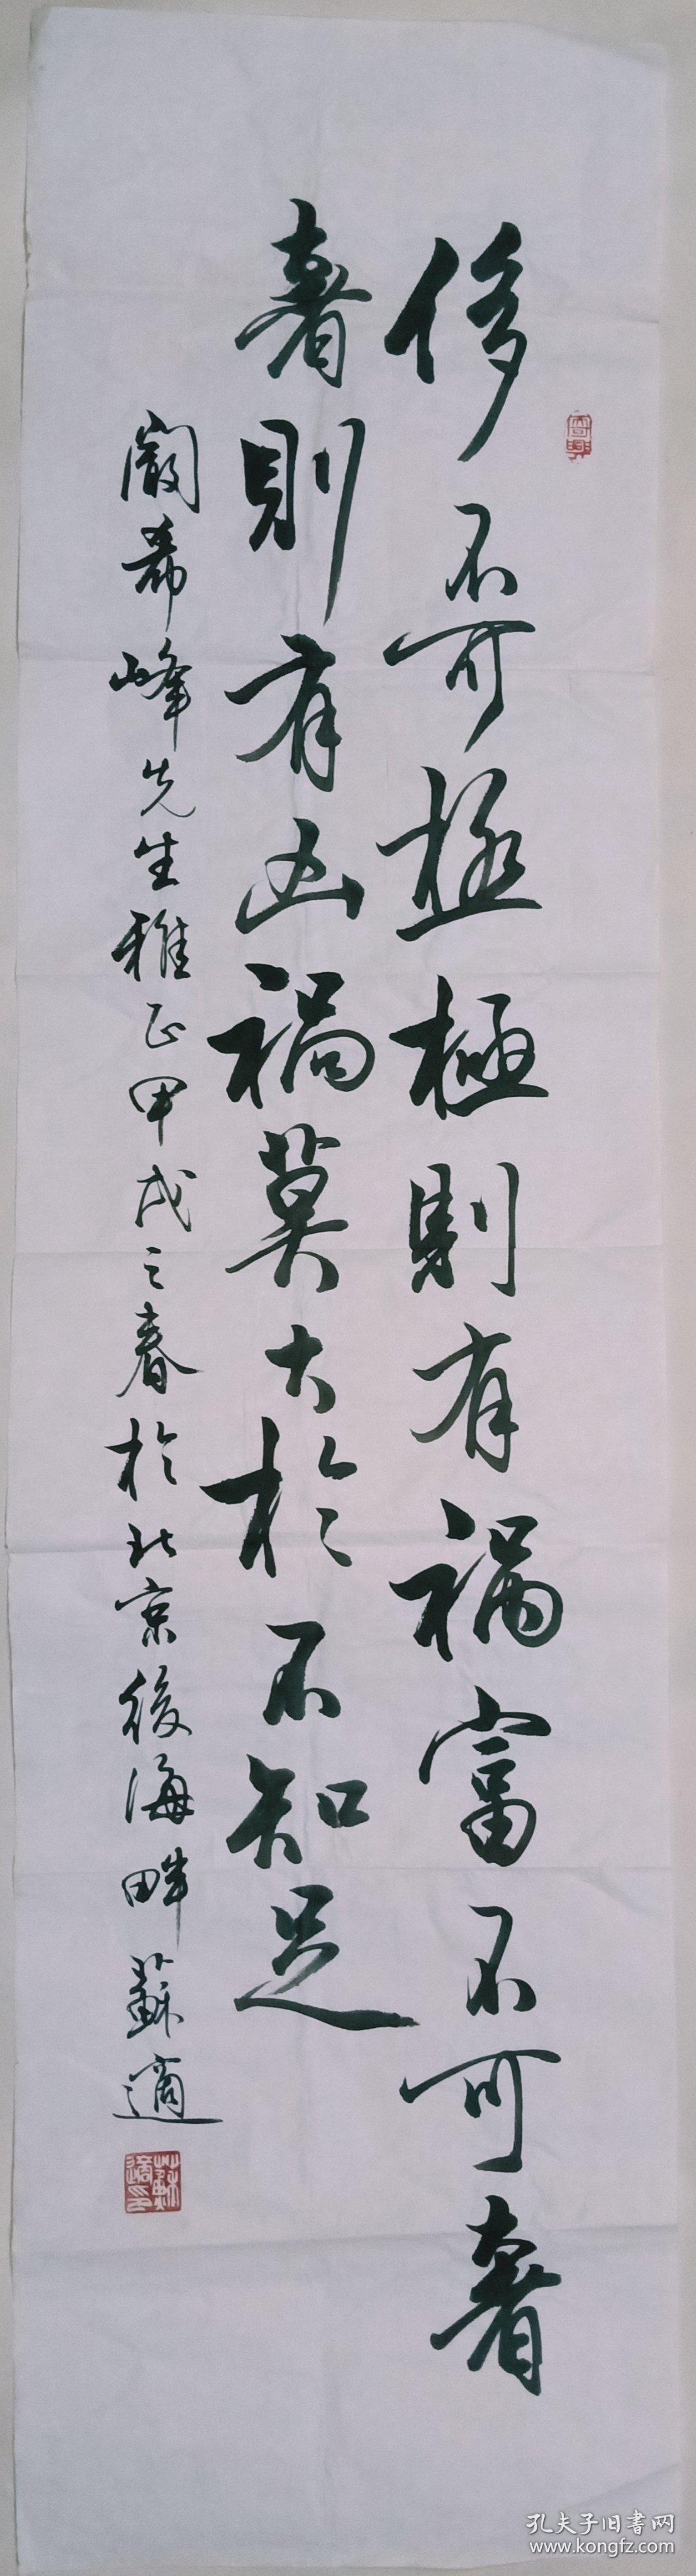 侈不可極極則有禍富不可奢
奢則有凶禍莫大於不知足
闞希峰先生雅正甲戌之春於北京後海畔蘇適
蘇適之印
孔夫子旧書网
www.kongfz.com